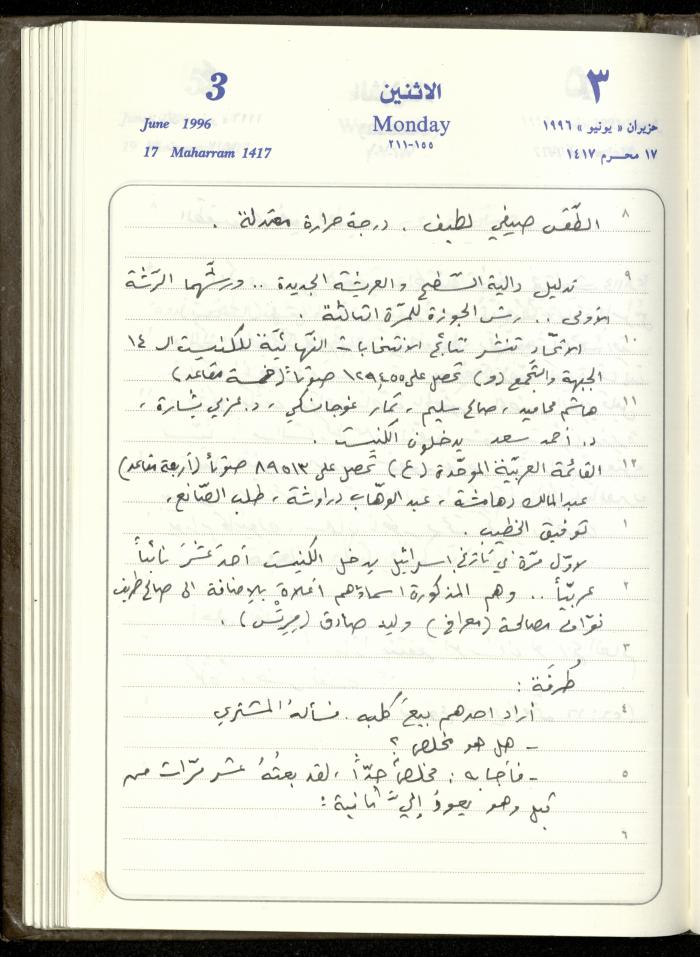 3
الاثنين
٣
June 1996
Monday
حزيران « يونيو » ١٩٩٦
17 Maharram 1417
٢١١-١٥٥
١٧ محرم ١٤١٧
٨ الطّقس صيفي لطيف . درجة حرارة معتدلة .
٩ تدليل دالية السّطح والعريشة الجديدة .. ورشّهما الرّشّة
الأولى .. رش الجوزة للمرّة الثالثة .
١٠ الاتّحاد تنشر نتائج الانتخابات النّهائيّة للكنيست الـ ١٤
الجبهة والتّجمع (و) تحصل على ١٢٩٤٥٥ صوتاً (خمسة مقاعد)
١١ هاشم محاميد ، صالح سليم ، تمار غوجانسكي ، د. عزمي بشارة ،
د. أحمد سعد يدخلون الكنيست .
١٢ القائمة العربيّة الموحّدة (ع) تحصل على ٨٩٥١٣ صوتاً (أربعة مقاعد)
عبدالمالك دهامشة ، عبد الوهّاب دراوشة ، طلب الصّانع ،
١ توفيق الخطيب .
لأوّل مرّة في تاريخ اسرائيل يدخل الكنيست أحدَ عشَرَ نائباً
٢ عربيّاً .. وهم المذكورة اسماؤهم اعلاه بالإضافة الى صالح طريف
نوّاف مصالحة (معراخ) وليد صادق (ميرتس) .
٣
طُرفَة :
٤ أراد احدهم بيعَ كلبه . فسألهُ المشتري
- هل هو مخلص ؟
٥ - فأجابه : مخلصٌ جدّاً ، لقد بعتُهُ عشر مرّات من
قبل وهو يعودُ إليّ ثانية :
٦